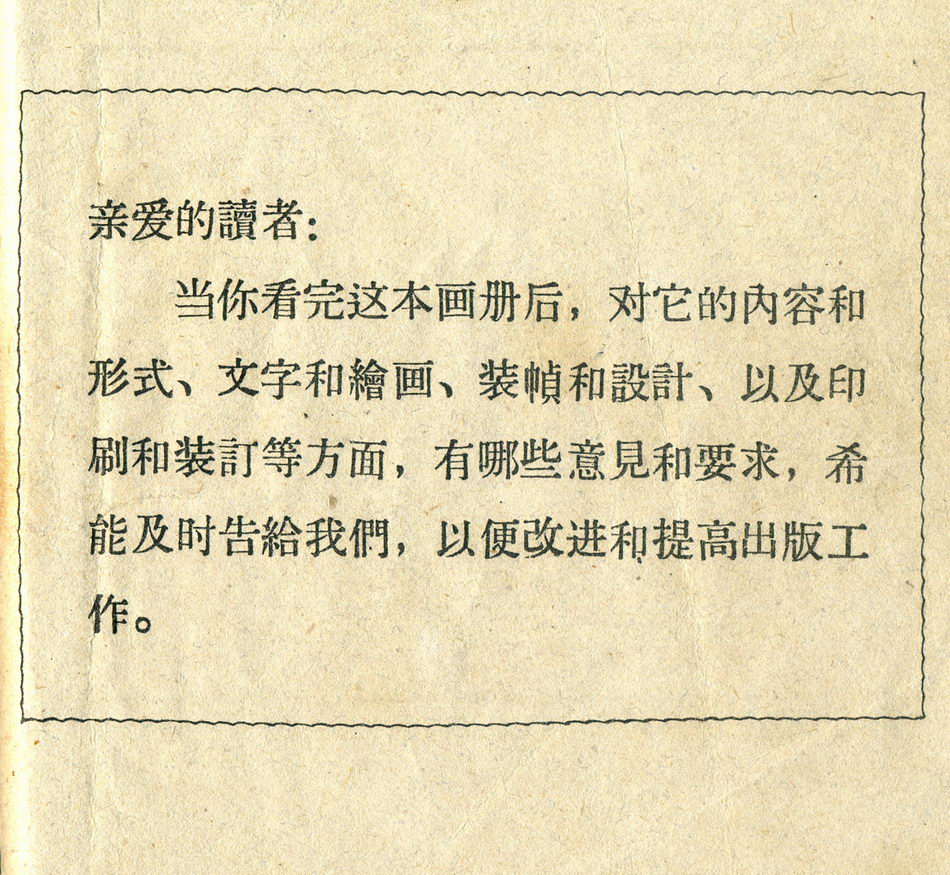 亲爱的讀者：
当你看完这本画册后，对它的內容和
形式、文字和繪画、装幀和設計、以及印
刷和装訂等方面，有哪些意見和要求，希
能及时告給我們，以便改进和提高出版工
作。